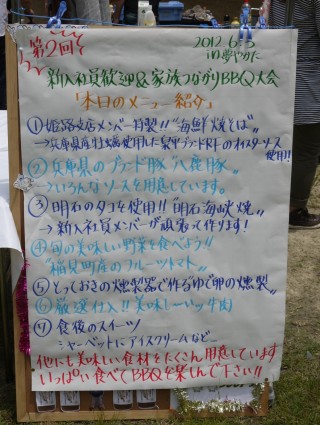 第2回
2012.6.3
in 夢やかた
新入社員歓迎&家族つながりBBQ大会
「本日のメニュー紹介」
①姫路支店メンバー自製!!"海鮮焼そば"
→兵庫県産牡蠣使用した泉平ブランドR千のオイスターソース
使用!!
②兵庫県のブランド豚"八鹿豚"
→いろんなソースを用意しています。
③明石のタコを使用!!"明石海峡焼"
→新入社員メンバーが頑張って作ります!
④旬の美味しい野菜を食べよう!!
"稲見町産のフルーツトマト"
⑤とっておきの燻製器で作るゆで卵の燻製
⑥厳選仕入!!美味し〜いッ牛肉
⑦食後のスイーツ
シャーベットにアイスクリームなど…
他にも美味しい食材をたくさん用意しています
いっぱい食べてBBQを楽しんで下さい!!